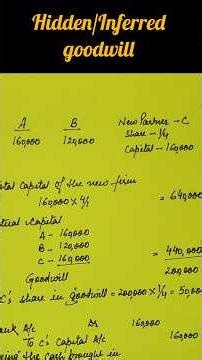 Hidden/Inferred
goodwill
A B New Partner - C
160,000 120,000 Share - 1/4
Capital - 160,000
Total Capital of the new firm
160,000 × 4/1 = 640,000
Actual Capital
A - 160,000
B - 120,000
C - 160,000 440,000
Goodwill 200,000
C's share in goodwill = 200,000 × 1/4 = 50,000
Bank A/c Dr 160,000
To C's Capital A/c 160,000
Being the cash brought in